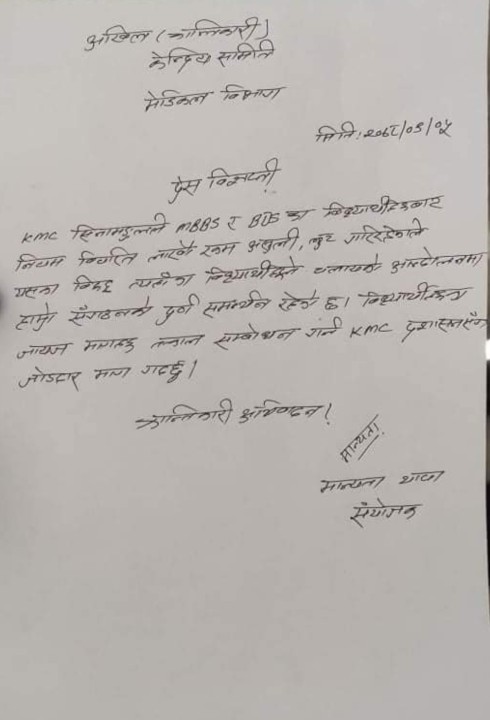 अखिल (क्रान्तिकारी)
केन्द्रिय समिति
मेडिकल विभाग
मिति: २०७८/०९/०५
प्रेस विज्ञप्ती
KMC सिनामङ्गलले MBBS र BDS का विद्यार्थीहरूबाट
नियम विपरित लाखौ रकम असुली, लुट गरिरहेकाले
यसका विरुद्ध त्यहाँका विद्यार्थीहरूले चलाएको आन्दोलनमा
हाम्रो संगठनको पूर्ण समर्थन रहेको छ। विद्यार्थीहरूका
जायज मागहरू तत्काल सम्बोधन गर्न KMC प्रशासनसँग
जोडदार माग गर्दछु।
क्रान्तिकारी अभिवादन!
मान्यता
मान्यता थापा
संयोजक